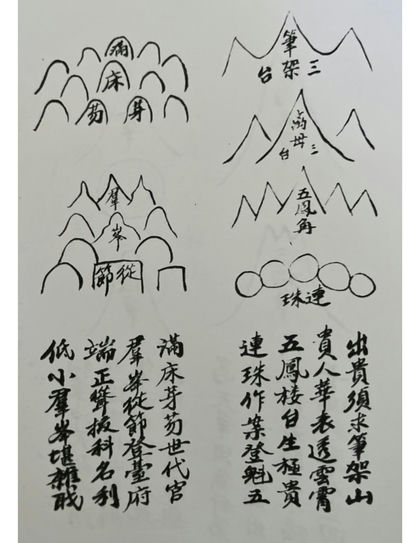 筆架
三台
母
三台
五鳳角
連珠
滿
床
芽
芴
羣
峯
從節
出貴須求筆架山
貴人華表透雲霄
五鳳楼台生極貴
連珠作案登魁五
滿床芽芴世代官
羣峯從節登臺府
端正聳拔科名利
低小羣峯堪雜